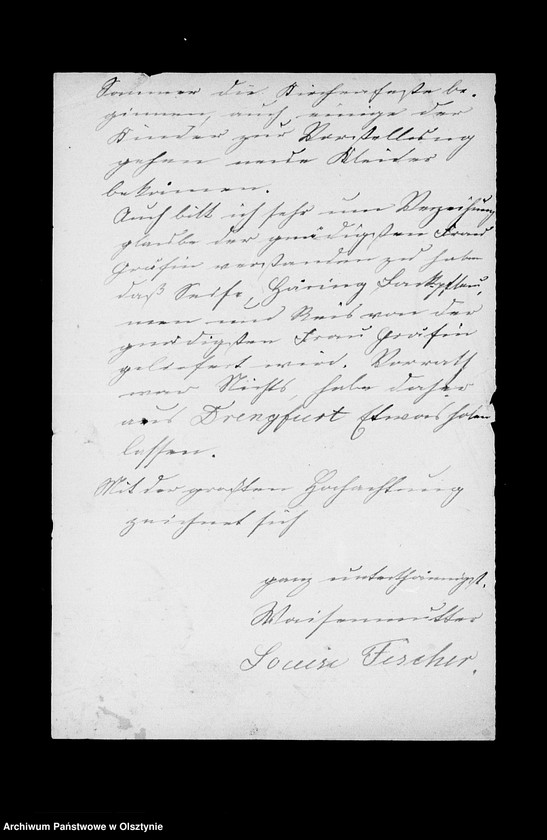 Sommer die Kirchenfeste be-
ginnen, auch einige der
Kinder zur Vorstellung
gehen neue Kleider
bekommen.
Auch bitt ich sehr um Verzeihung
glaube der gnädigsten Frau
Gräfin verstanden zu haben
daß Seife, Häring Backpflau-
men und Reis von der
gnädigsten Frau Gräfin
geliefert wird. Vorrath
war Nichts, habe daher
aus Drengfurt Etwas holen
lassen.
Mit der größten Hochachtung
zeichnet sich
ganz unterthänigst.
Waisenmutter
Louise Fischer.
Archiwum Państwowe w Olsztynie